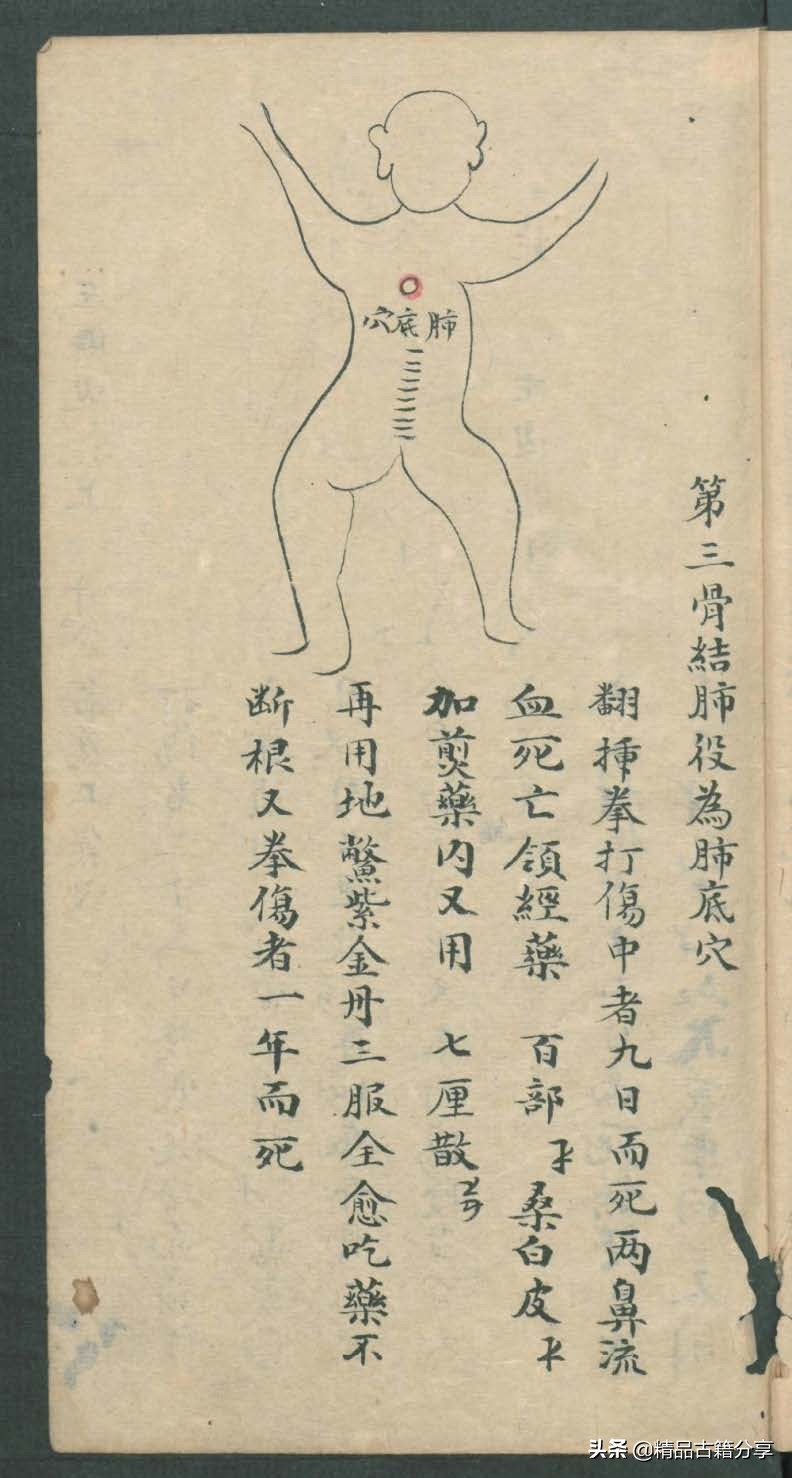 穴底肺
第三骨結肺役為肺底穴
翻揷拳打傷中者九日而死两鼻流
血死亡領經藥 百部 桑白皮
加煎藥内又用 七厘散
再用地鱉紫金丹三服全愈吃藥不
断根又拳傷者一年而死
头条 @精品古籍分享